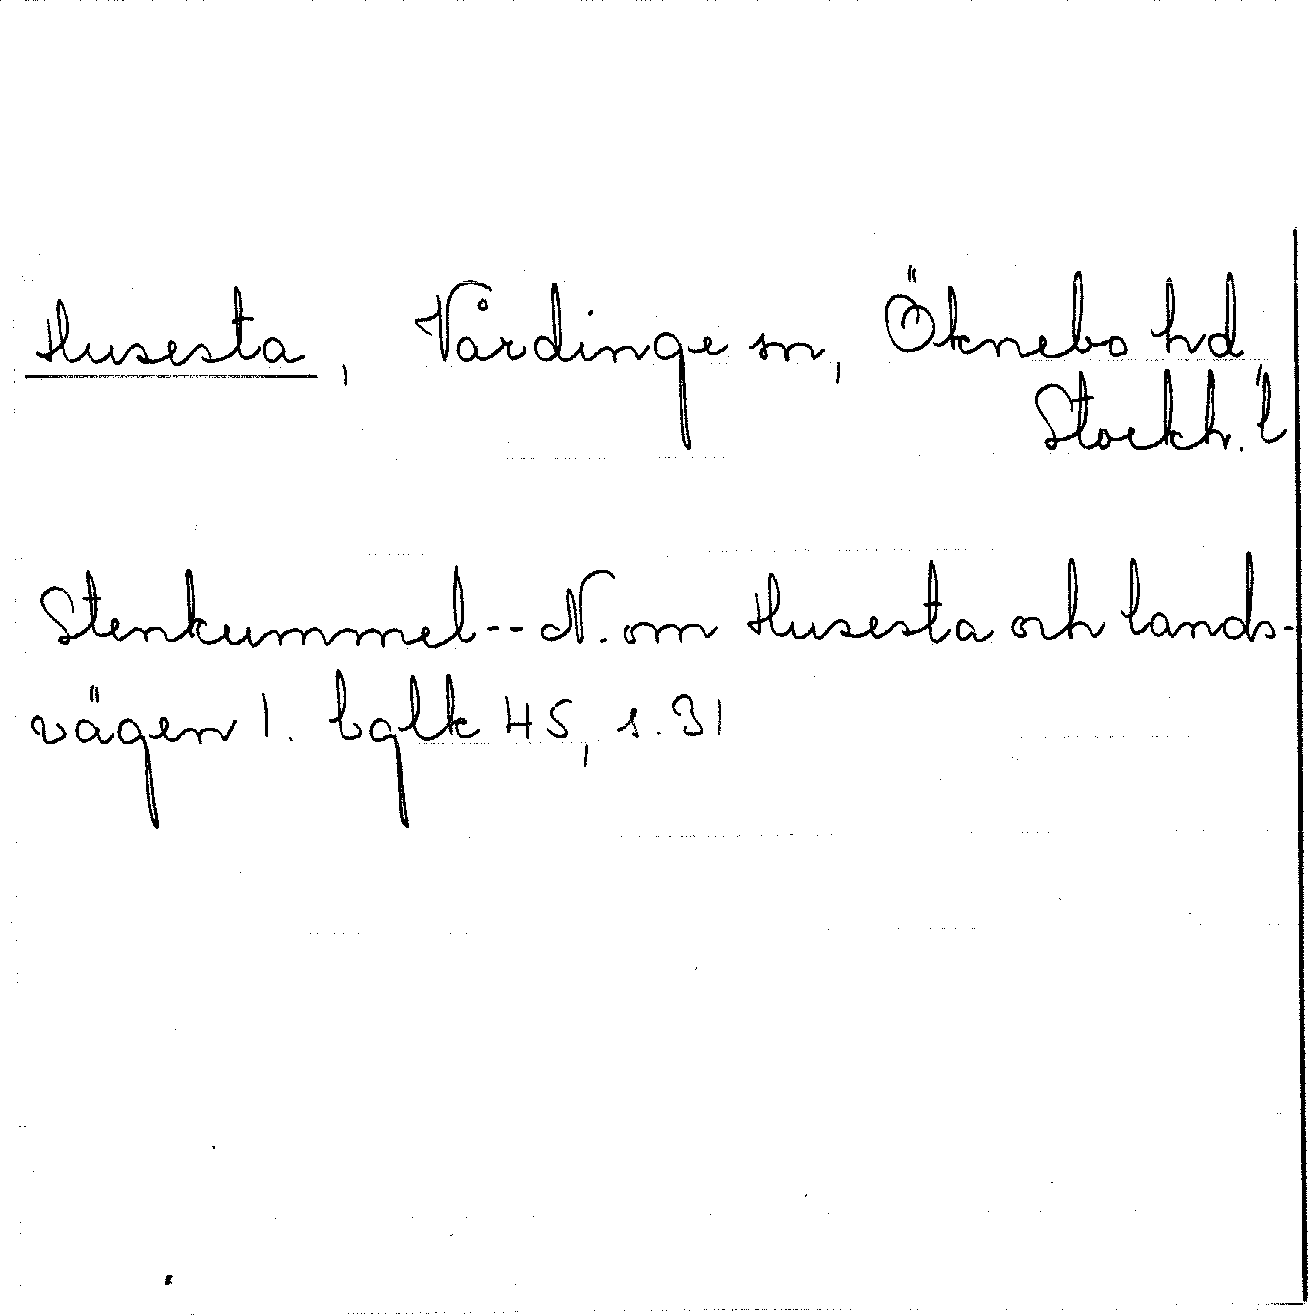 Husesta, Vårdinge sn, Öknebo hd,
Stockh. l
Stenkummel -- N. om Husesta och lands-
vägen 1. bglk 45, s. 31